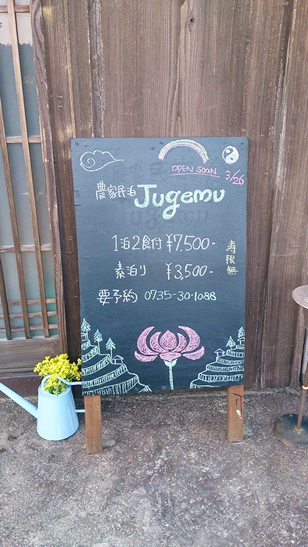 OPEN SOON 3/26
農家民泊 Jugemu
寿限無
1泊2食付 ¥7,500-
素泊り ¥3,500-
要予約 0735-30-1088